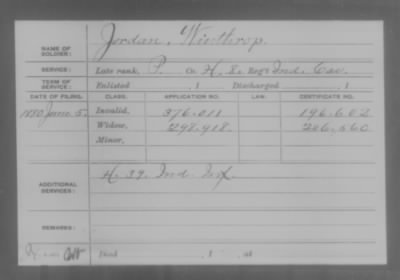 NAME OF SOLDIER: Jordan, Winthrop.
SERVICE: Late rank, P. Co. H. 8. Reg't Ind. Cav.
TERM OF SERVICE: Enlisted , 1 Discharged , 1
DATE OF FILING. CLASS. APPLICATION NO. LAW. CERTIFICATE NO.
1880 June 5. Invalid, 376.011 196.602
Widow, 298.918. 206.660
Minor,
ADDITIONAL SERVICES: H. 39. Ind. Inf.
REMARKS:
Died , 1 at